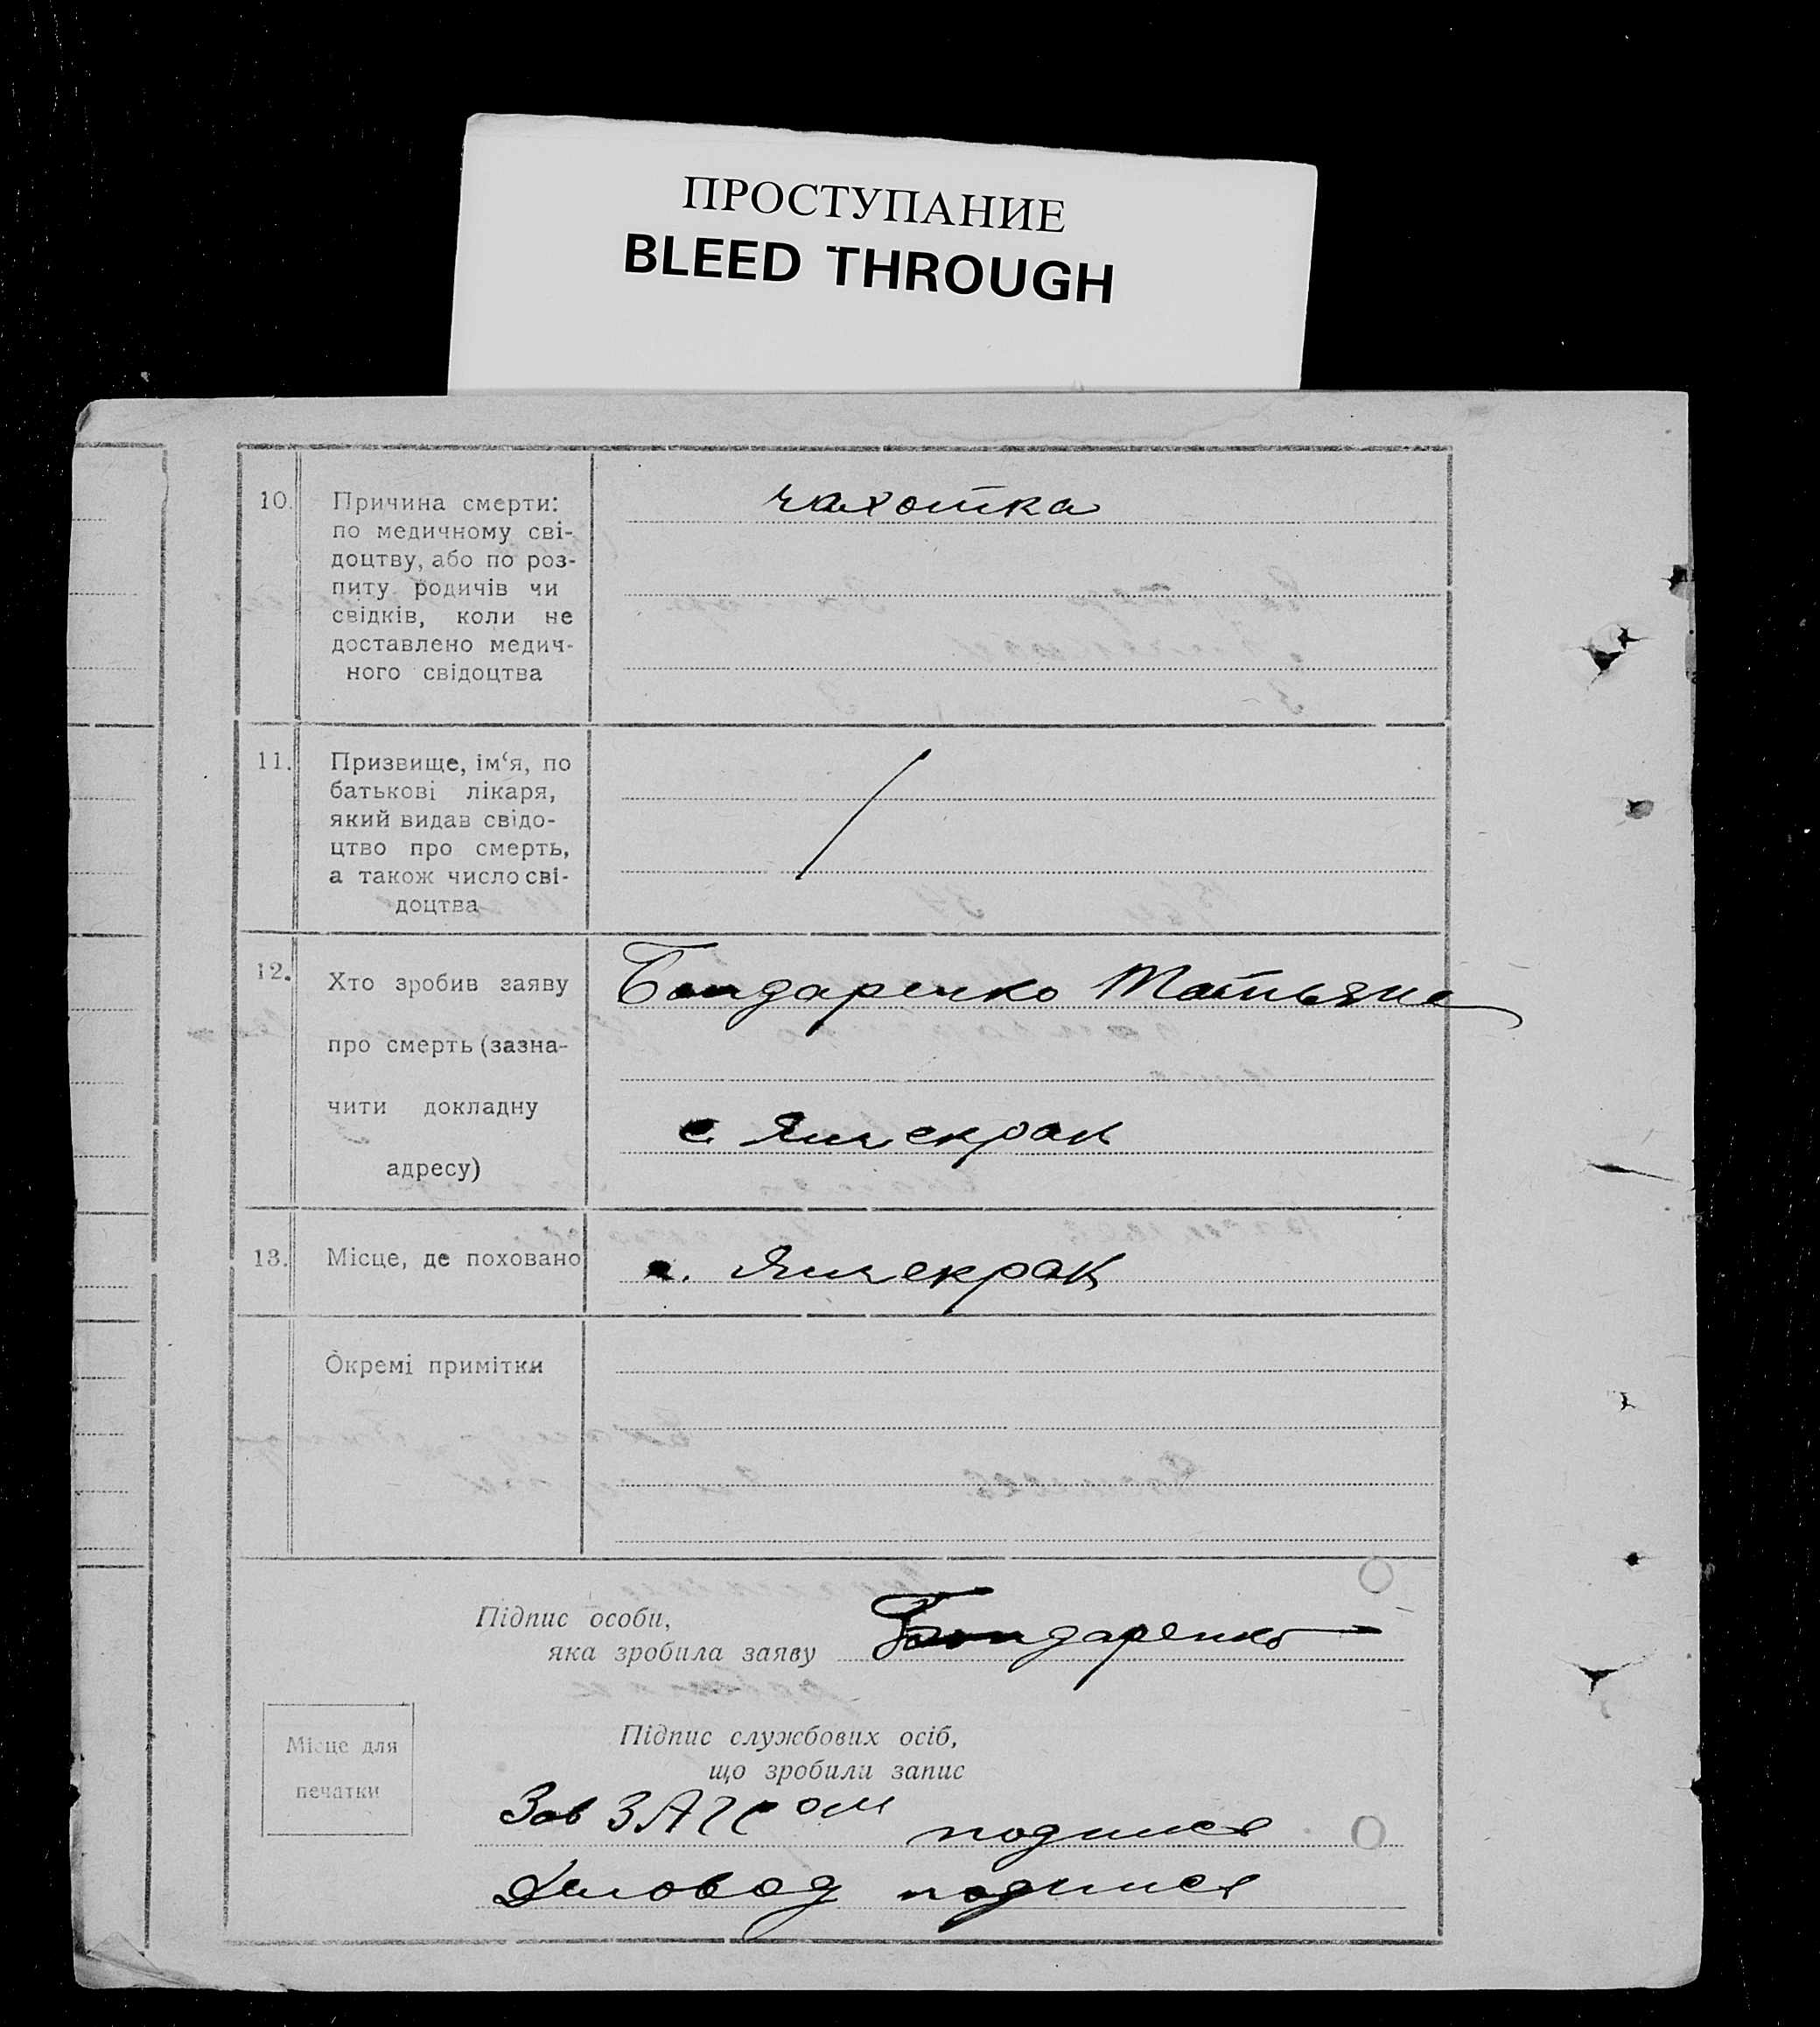 ПРОСТУПАНИЕ
BLEED THROUGH
10. Причина смерти:
по медичному сві-
доцтву, або по роз-
питу родичів чи
свідків, коли не
доставлено медич-
ного свідоцтва
чахотка
11. Призвище, ім‘я, по
батькові лікаря,
який видав свідо-
цтво про смерть,
а також число сві-
доцтва
12. Хто зробив заяву
про смерть (зазна-
чити докладну
адресу)
Бондаренко Татьяна
с Янчекрак
13. Місце, де поховано
с. Янчекрак
Окремі примітки
Підпис особи,
яка зробила заяву Бондаренко
Місце для
печатки
Підпис службових осіб,
що зробили запис
Зав ЗАГСом подпись
Деловод подпись